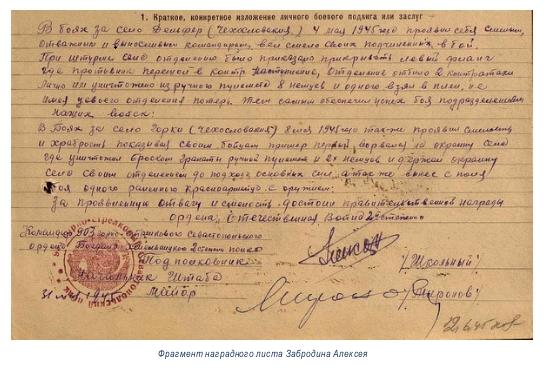 1. Краткое, конкретное изложение личного боевого подвига или заслуг
В боях за село (Чехословакия) 4 мая 1945 года проявил себя смелым,
отважным и выносливым командиром, вел смело своих подчиненных в бой.
При штурме село отделению было приказано прикрывать левый фланг
где противник перешел в контр наступление, отделение отбило 2 контратаки
лично им уничтожено из ручного пулемета 8 немцев и одного взял в плен, не
имея своего отделения потерь. Тем самым обеспечил успех боя подразделениям
наших войск.
В боях за село Горки (Чехословакия) 8 мая 1945 года так-же проявил смелость
и храбрость показывая своим бойцам пример первый ворвался на окраину село
где уничтожил броском гранаты ручной пулемет и 2х немцев и держал окраину
село своим отделением до подхода основных сил, а так же вынес с поля
боя одного раненного красноармейца с оружием.
За проявленную отвагу и смелость достоин правительственной награды
ордена, "Отечественная Война 2 степени"
Командир 903 горно-стрелкового Севастопольского
ордена Богдана Хмельницкого 2 степени полка
Подполковник
/Школьный/
Начальник Штаба
Майор
/Миронов/
31 мая 1945
Фрагмент наградного листа Забродина Алексея